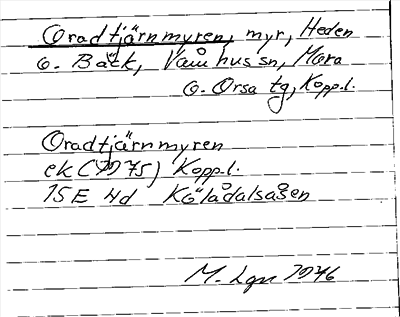 Oradtjärnmyren, myr, Heden
o. Bäck, Våmhus sn, Mora
o. Orsa tg, Kopp.l.
Oradtjärnmyren
ek (1975) Kopp.l.
15E 4d Kölådalsåsen
M. Lgn 1976